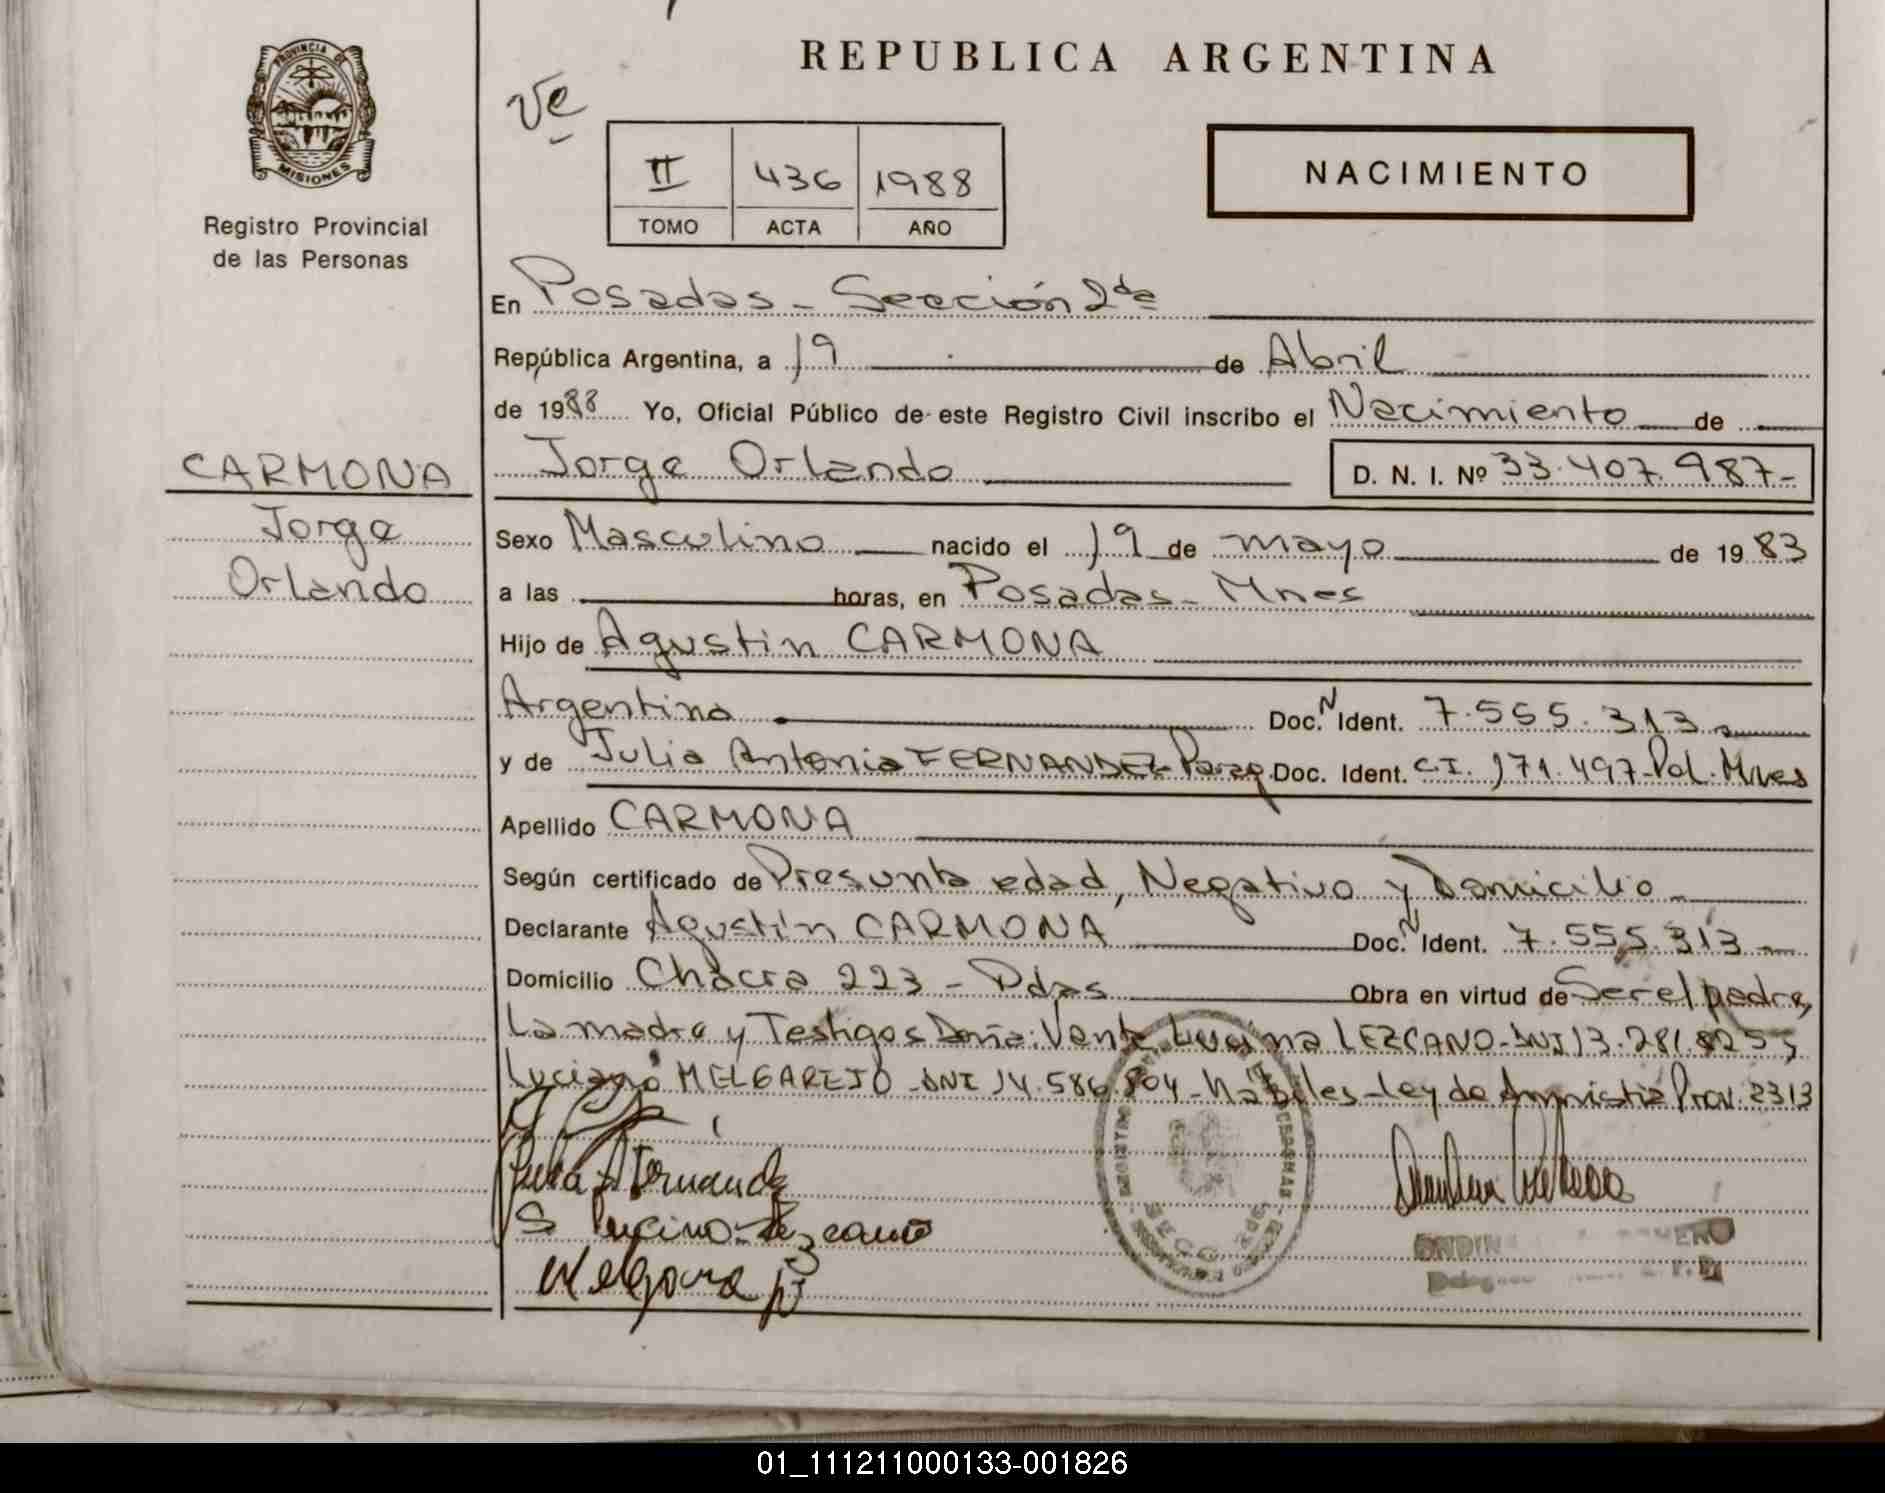 REPUBLICA ARGENTINA
PROVINCIA DE
MISIONES
Registro Provincial
de las Personas
II 436 1988
TOMO ACTA AÑO
NACIMIENTO
En Posadas - Sección 2da
República Argentina, a 19 de Abril
de 1988 Yo, Oficial Público de este Registro Civil inscribo el Nacimiento de
CARMONA
Jorge
Orlando
Jorge Orlando D. N. I. Nº 33.407.987-
Sexo Masculino nacido el 19 de mayo de 1983
a las horas, en Posadas - Mnes
Hijo de Agustin CARMONA
Argentino Doc. N Ident. 7.555.313
y de Julia Antonia FERNANDEZ - Parag. Doc. Ident. C.I. 171.497-Pol. Mnes
Apellido CARMONA
Según certificado de Presunta edad, Negativo y Domicilio
Declarante Agustín CARMONA Doc. N Ident. 7.555.313
Domicilio Chacra 223 - Pdas Obra en virtud de Ser el padre,
La madre y Testigos Doña: LEZCANO - DNI 13.281.
Luciano MELGAREJO - DNI 14.586.804 - Hábiles - Ley de Amnistia Prov. 2313
01_111211000133-001826